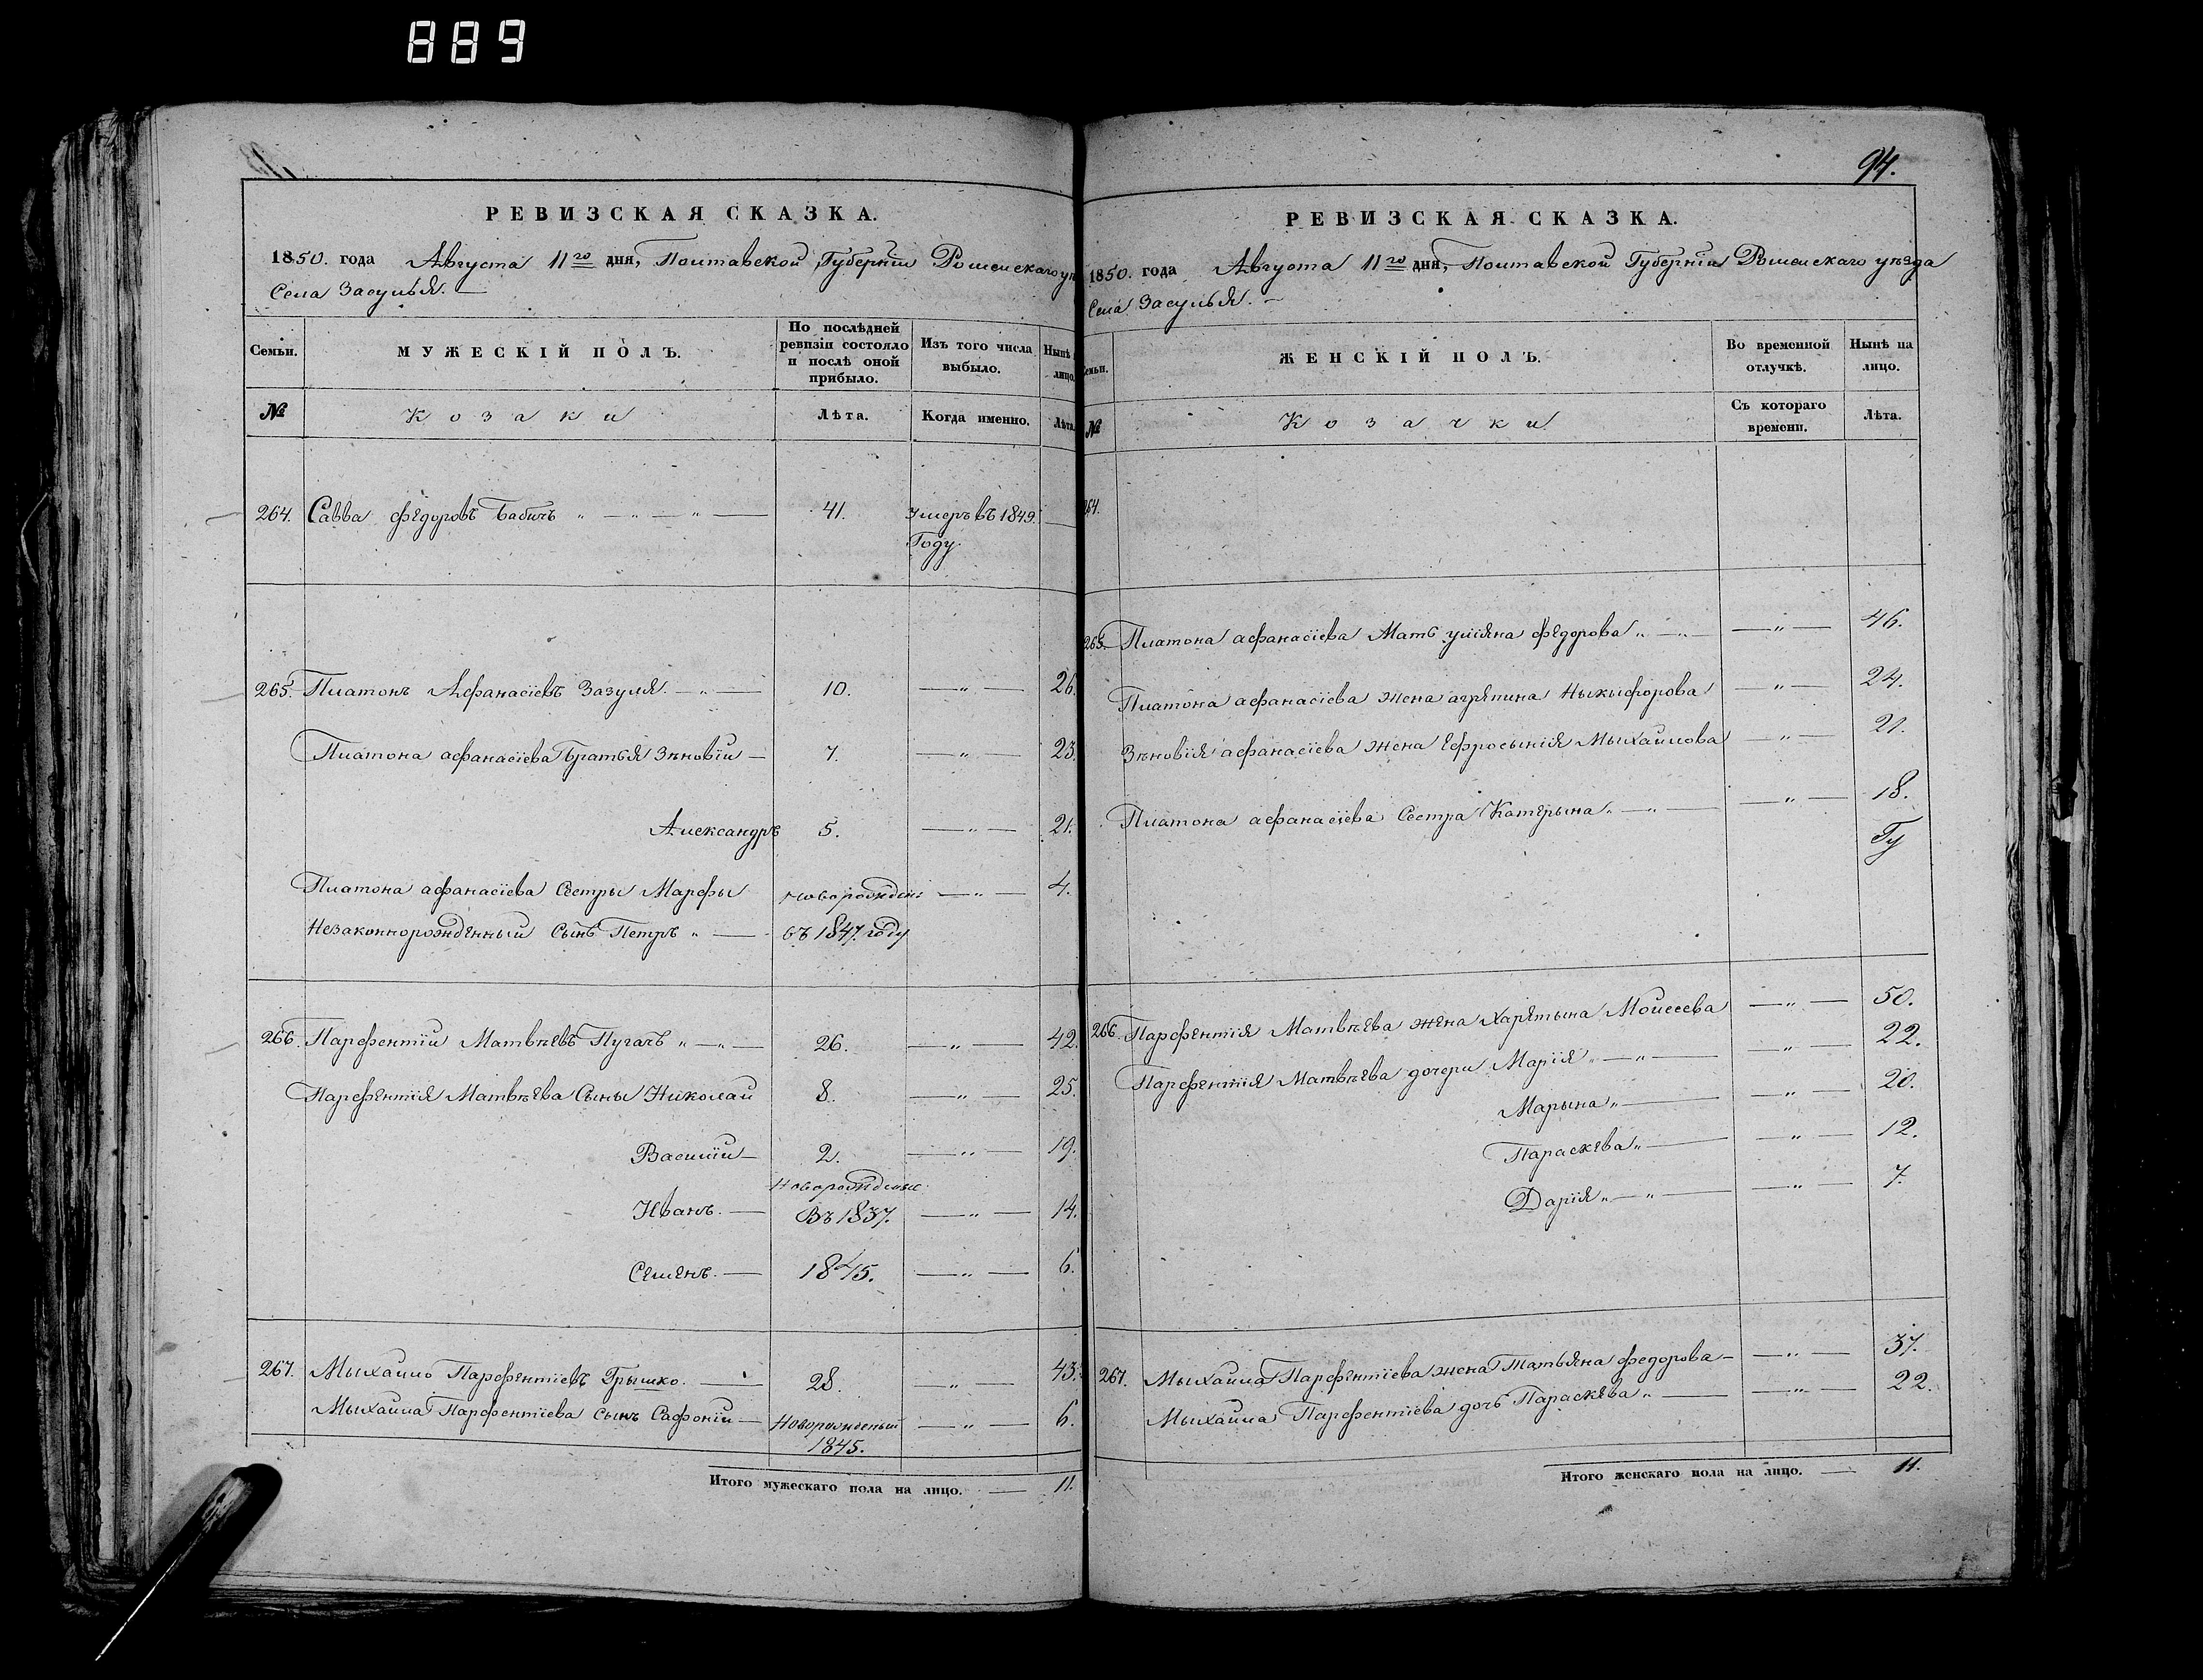 889
РЕВИЗСКАЯ СКАЗКА.
1850. года Августа 11го дня, Полтавской Губерніи Роменскаго уѣ
Села Засулья.
Семьи.
МУЖЕСКІЙ ПОЛЪ.
По послѣдней ревизіи состояло и послѣ оной прибыло.
Изъ того числа выбыло.
Нынѣ
лицо.
№
Козаки
Лѣта.
Когда именно.
Лѣта.
264. Савва Федоровъ Бабичъ " — " — " — 41. Умеръ въ 1849.
Году.
265. Платонъ Афанасіевъ Зазуля. — " — 10. — " — 26.
Платона афанасіева братья Зѣновій — 7. — " — 23.
Александръ 5. — " — 21.
Платона афанасіева Сестры Марфы новорожден: — " — 4.
Незаконнорожденный Сынъ Петръ " — въ 1847. году
266. Парфентій Матвѣевъ Пугачъ " — " — 26. — " — 42.
Парфентія Матвѣева Сыны Николай 8. — " — 25.
Василій — 2. — " — 19.
Новорожденые
Иванъ. — Въ 1837. — " — 14.
Семенъ. — 1845. — " — 6.
267. Мыхайло Парфентіевъ Грышко. — 28. — " — 43.
Мыхайла Парфентіева сынъ Сафоній — Новорожденый — " — 6.
1845.
Итого мужескаго пола на лицо. — 11.
94.
РЕВИЗСКАЯ СКАЗКА.
1850. года Августа 11го дня, Полтавской Губерніи Роменскаго уѣзда
Села Засулья. —
Семьи.
ЖЕНСКІЙ ПОЛЪ.
Во временной отлучкѣ.
Нынѣ на лицо.
№
Козачки
Съ котораго времени.
Лѣта.
264.
265. Платона афанасіева Мать уліяна федорова " — " — — " — 46.
Платона афанасіева жена агрѣпина Ныкыфорова — " — 24.
Зѣновія афанасіева жена Ефросынія Мыхайлова — " — 21.
Платона афанасіева Сестра Катерына " — " — — " — 18.
266. Парфентія Матвѣева жена Харѣтына Моисеева — " — 50.
Парфентія Матвѣева дочери Марія " — " — — " — 22.
Марына " — — " — 20.
Параскева " — — " — 12.
Дарія " — " — — " — 7.
267. Мыхайла Парфентіева жена Татьяна федорова — — " — 37.
Мыхайла Парфентіева дочь Параскева " — — " — 22.
Итого женскаго пола на лицо. — 11.